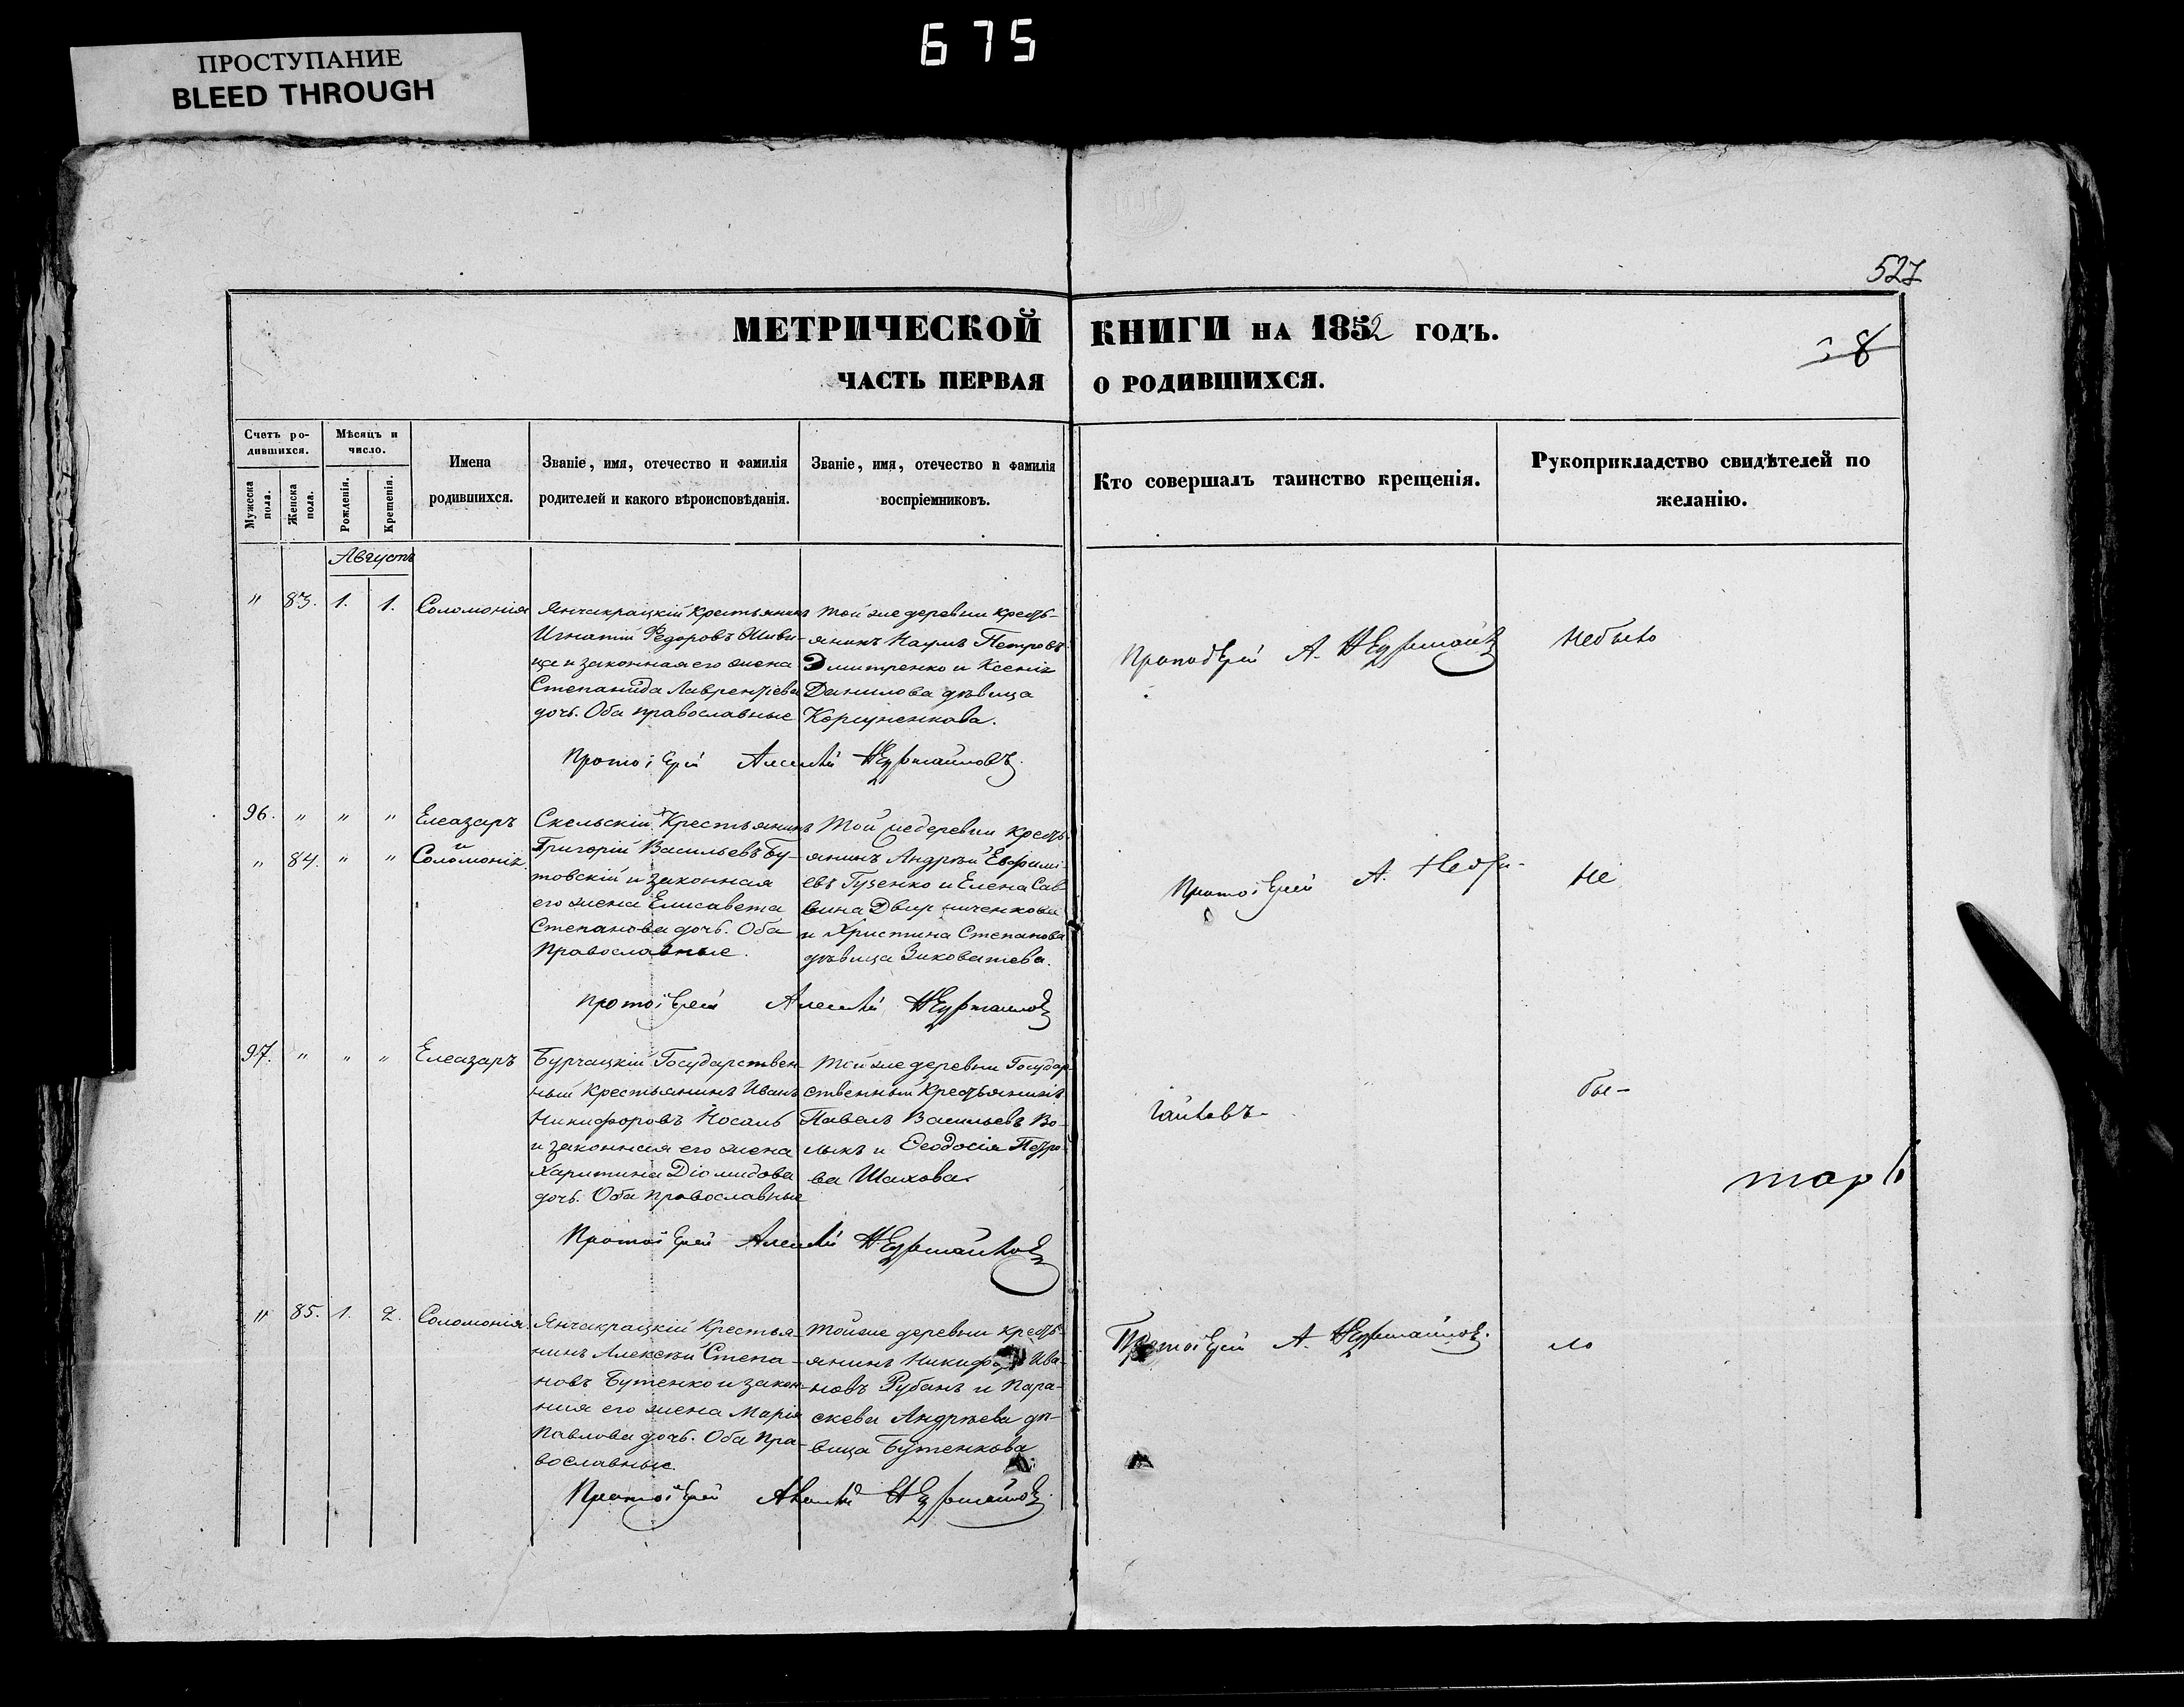 ПРОСТУПАНИЕ
BLEED THROUGH
675
527
МЕТРИЧЕСКОЙ КНИГИ НА 1852 ГОДЪ.
8
ЧАСТЬ ПЕРВАЯ О РОДИВШИХСЯ.
Счетъ ро-
дившихся.
Мужеска пола.
Женска пола.
Мѣсяцъ и
число.
Рожденія.
Крещенія.
Имена
родившихся.
Званіе, имя, отечество и фамилія
родителей и какого вѣроисповѣданія.
Званіе, имя, отечество и фамилія
воспріемниковъ.
Кто совершалъ таинство крещенія.
Рукоприкладство свидѣтелей по
желанію.
Августъ
" 83. 1. 1. Соломонія
Янчакрацкій Крестьянинъ
Игнатій Федоровъ
и законная его жена
Степанида Лаврентіева
дочь. Оба православные
Той же деревни Кресть-
янинъ Наумъ Петровъ
Дмитренко и Ксенія
Данилова дѣвица
Коржуненкова.
Протоіерей А.
Небыло
Протоіерей Алексѣй
96. " " " Елеазаръ
и
" 84. " " Соломонія
Скельскій Крестьянинъ
Григорій Васильевъ Бу-
товскій и законная
его жена Елисавета
Степанова дочь. Оба
Православные.
Той жедеревни Кресть-
янинъ Андрей Евфимі-
евъ Гузенко и Елена Сав-
вина
и Христина Степанова
дѣвица Зиковатева.
Протоіерей А.
Не
Протоіерей Алексѣй
97. " " " Елеазаръ
Бурчацкій Государствен-
ный Крестьянинъ Иванъ
Никифоровъ Носаль
и законная его жена
Харитина Діомидова
дочь. Оба православные
Той же деревни Государ-
ственный Крестьянинъ
Павелъ Васильевъ Во-
лыкъ и Ѳеодосія Петро-
ва Шахова.
бы-
Протоіерей Алексѣй
" 85. 1. 2. Соломонія.
Янчакрацкій Крестья-
нинъ Алексѣй Степа-
новъ Бутенко и закон-
ная его жена Марія
Павлова дочь. Оба Пра-
вославные.
Тойже деревни Кресть-
янинъ Никифоръ Ива-
новъ Рубанъ и Пара-
скева Андреева дѣ-
вица Бутенкова
Протоіерей А.
ло
Протоіерей Алексѣй